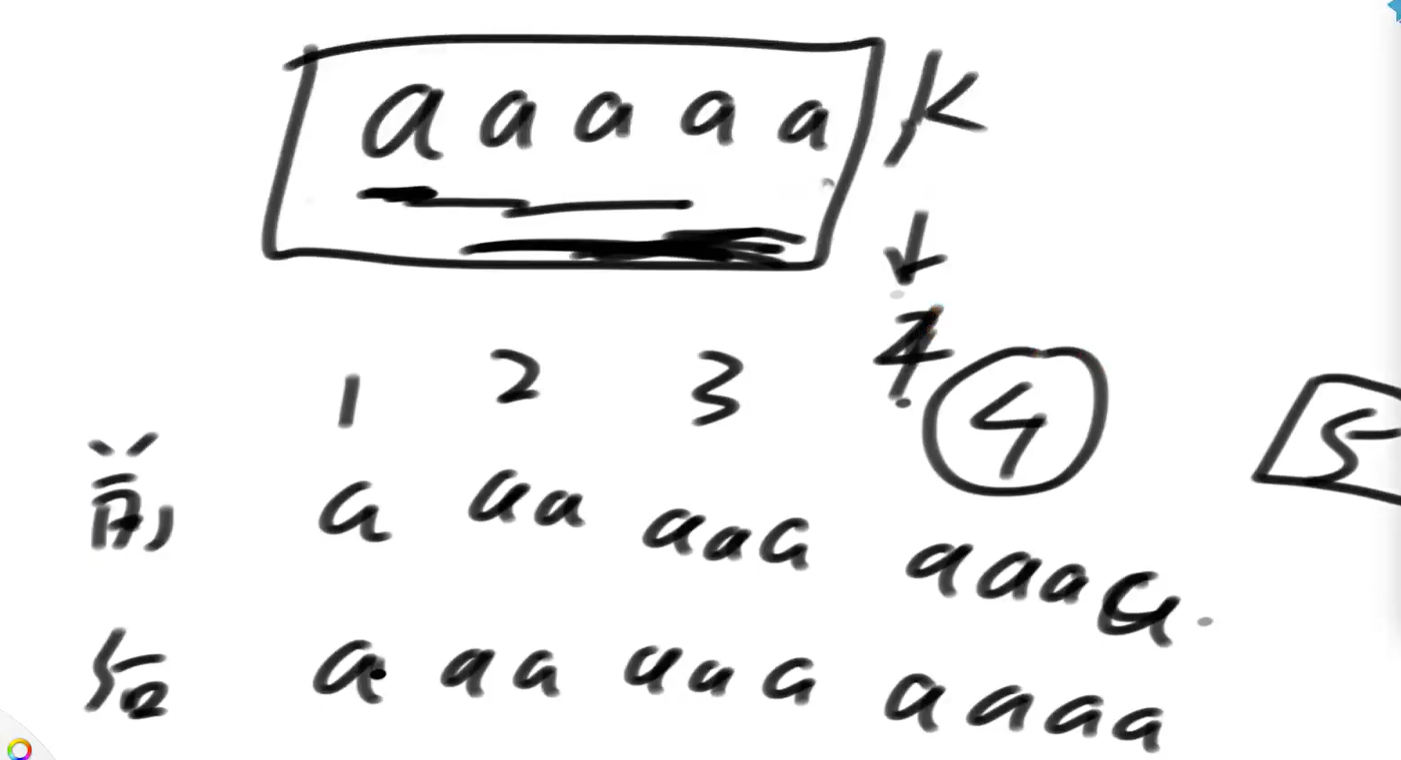 a a a a a , K
1 2 3 4 5
前 a aa aaa aaaa
后 a aa aaa aaaa